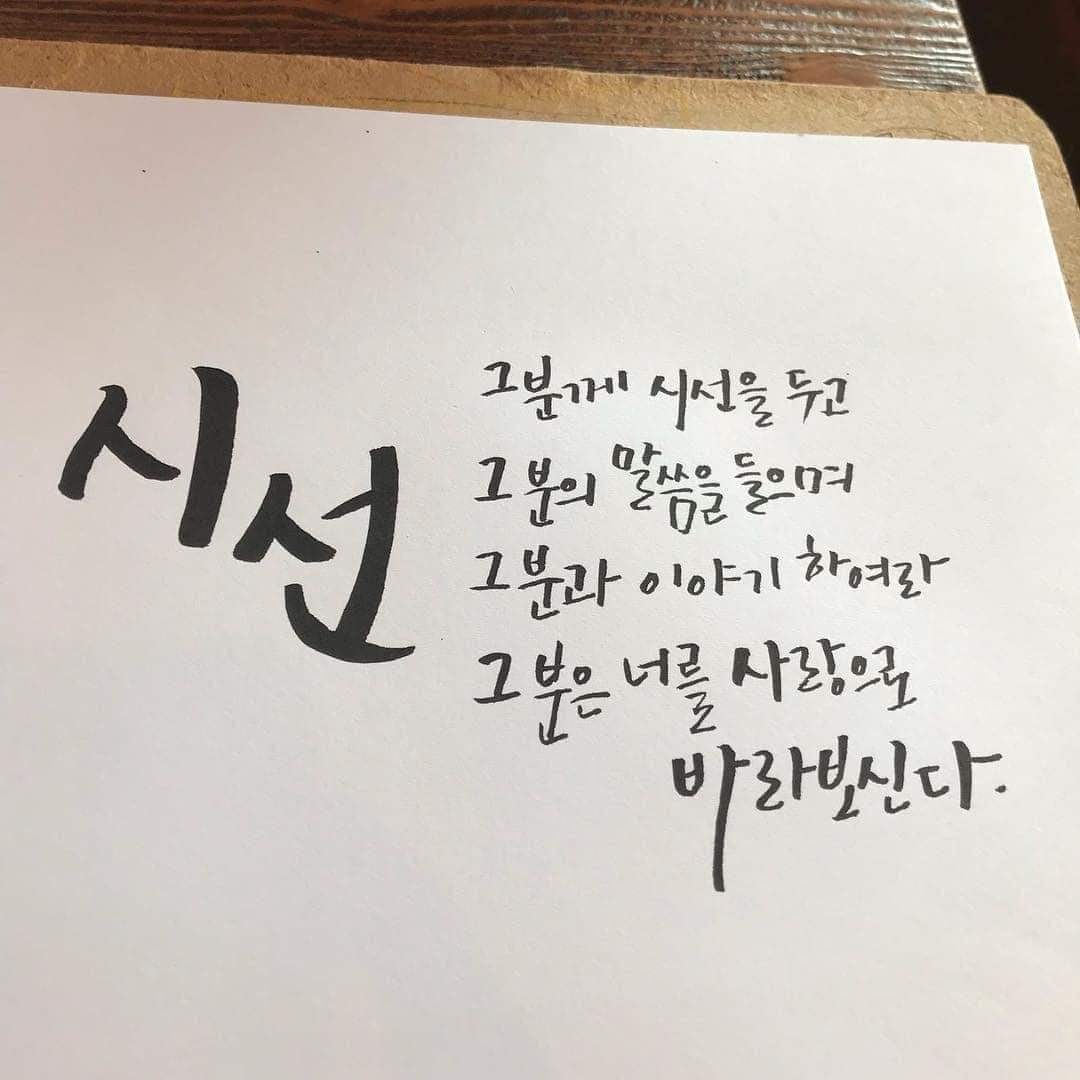 시선
그분께 시선을 두고
그분의 말씀을 들으며
그분과 이야기 하여라
그분은 너를 사랑으로
바라보신다.